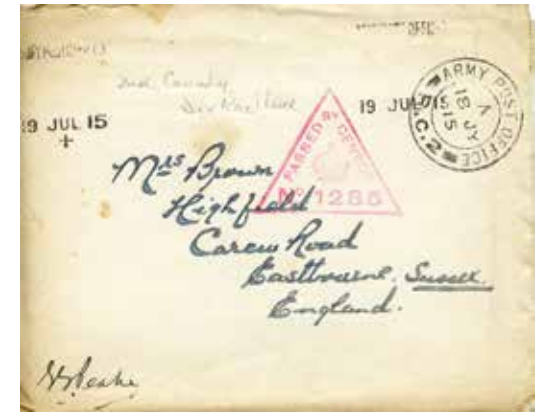 19 JUL 15
+
19 JUL 15
ARMY POST OFFICE
A
18 JY
15
PASSED BY CENSOR
No 1285
Mrs Brown
Highfield
Carew Road
Eastbourne, Sussex.
England.